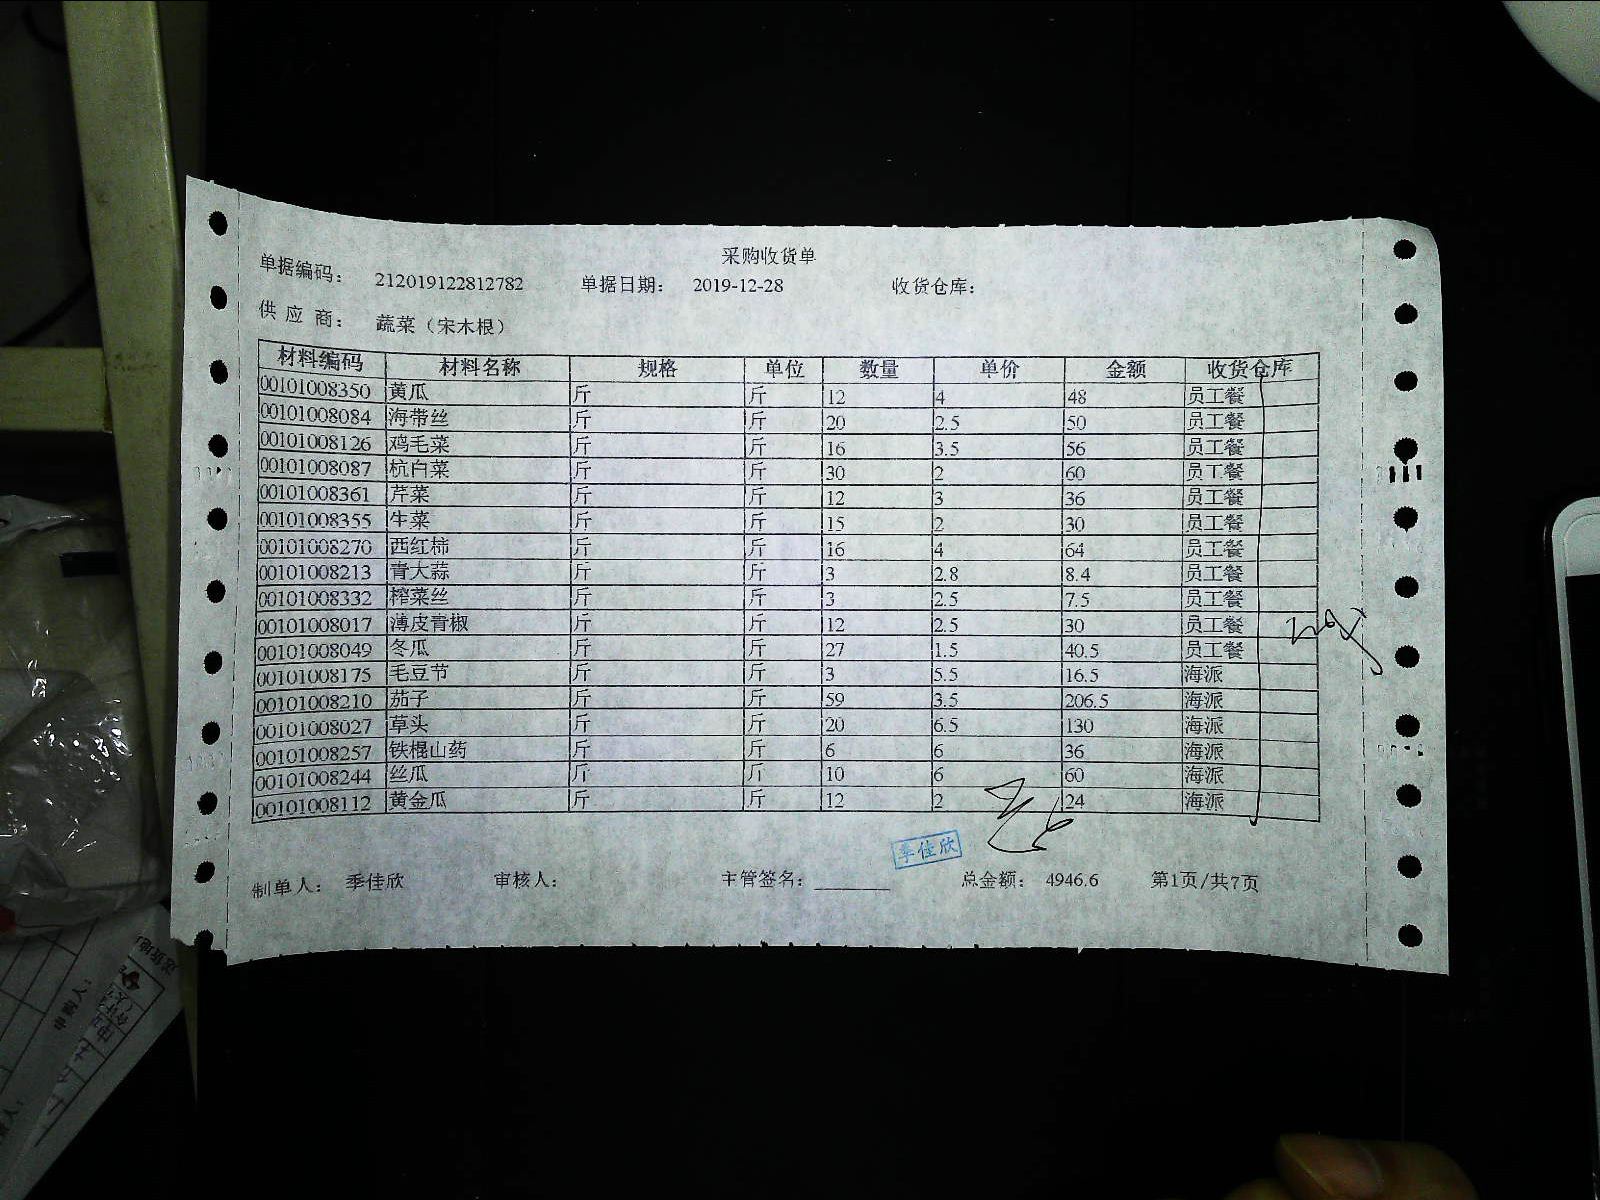 采购收货单
单据编码： 212019122812782 单据日期： 2019-12-28 收货仓库：
供 应 商： 蔬菜（宋木根）
材料编码 材料名称 规格 单位 数量 单价 金额 收货仓库
00101008350 黄瓜 斤 斤 12 4 48 员工餐
00101008084 海带丝 斤 斤 20 2.5 50 员工餐
00101008126 鸡毛菜 斤 斤 16 3.5 56 员工餐
00101008087 杭白菜 斤 斤 30 2 60 员工餐
00101008361 芹菜 斤 斤 12 3 36 员工餐
00101008355 生菜 斤 斤 15 2 30 员工餐
00101008270 西红柿 斤 斤 16 4 64 员工餐
00101008213 青大蒜 斤 斤 3 2.8 8.4 员工餐
00101008332 榨菜丝 斤 斤 3 2.5 7.5 员工餐
00101008017 薄皮青椒 斤 斤 12 2.5 30 员工餐
00101008049 冬瓜 斤 斤 27 1.5 40.5 员工餐
00101008175 毛豆节 斤 斤 3 5.5 16.5 海派
00101008210 茄子 斤 斤 59 3.5 206.5 海派
00101008027 草头 斤 斤 20 6.5 130 海派
00101008257 铁棍山药 斤 斤 6 6 36 海派
00101008244 丝瓜 斤 斤 10 6 60 海派
00101008112 黄金瓜 斤 斤 12 2 24 海派
季佳欣
制单人： 季佳欣 审核人： 主管签名： 总金额： 4946.6 第1页/共7页